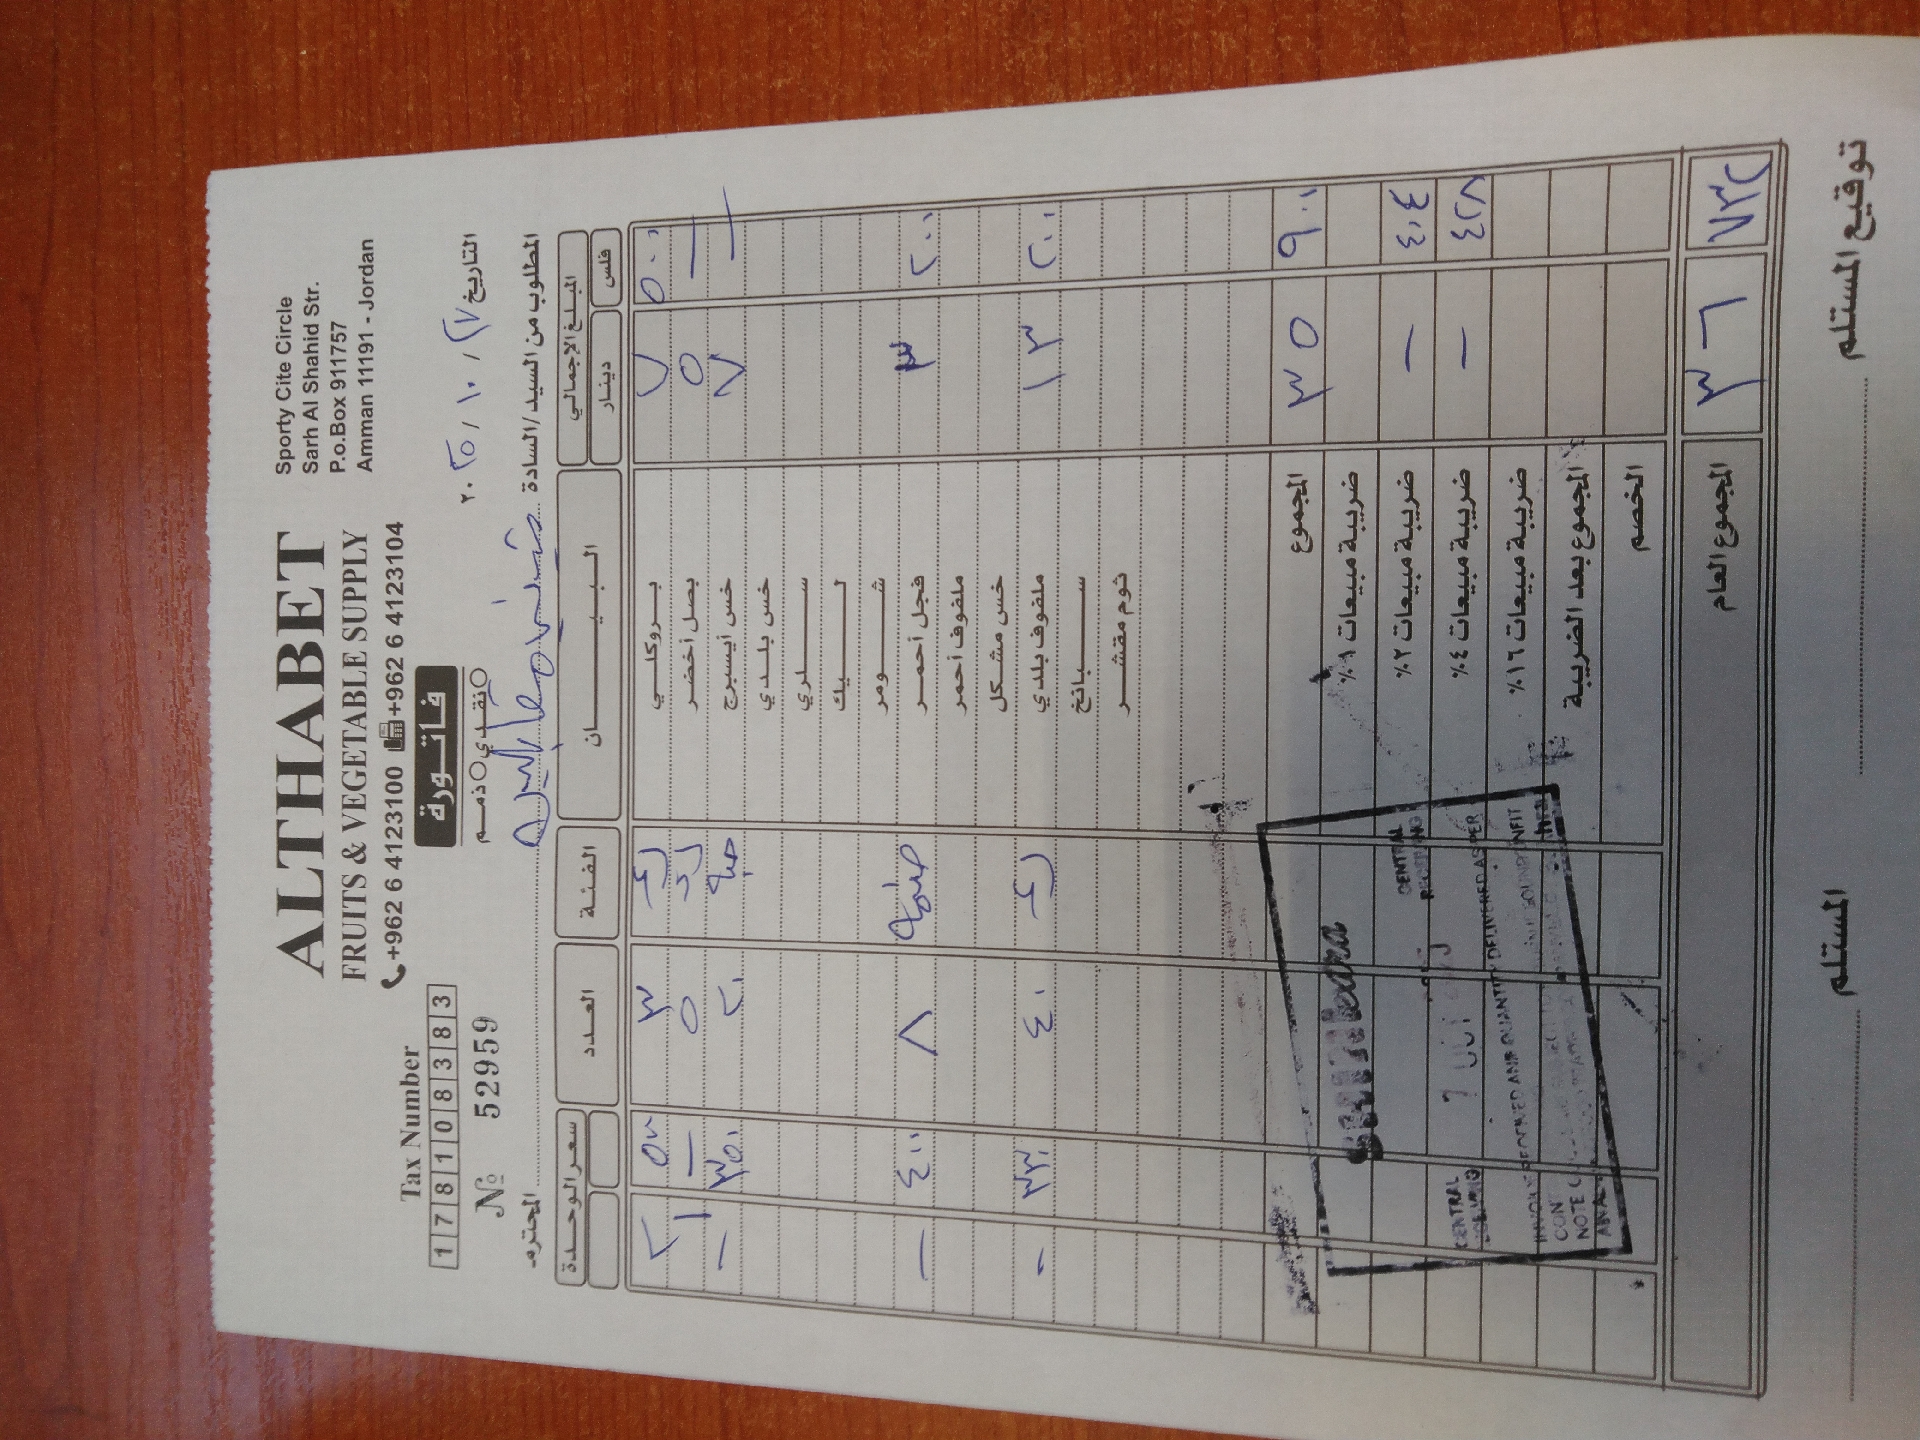 ALTHABET
FRUITS & VEGETABLE SUPPLY
+962 6 4123100 +962 6 4123104
Sporty Cite Circle
Sarh Al Shahid Str.
P.o.Box 911757
Amman 11191 - Jordan
Tax Number
178108383
№ 52959
فاتورة
نقدي ذمم
التاريخ ٧ / ١٠ / ٢٠٢٥
المطلوب من السيد/السادة
المحترم
المبلغ الإجمالي البيان الفئة العدد سعر الوحدة
دينار فلس
٧ ٥٠٠ بروكلي كغ ٣ ٢ ٥٠٠
٥ — بصل أخضر كغ ٥ ١ —
٧ — خس أيسبرج حبة ٢٠ — ٣٥٠
خس بلدي
سلري
ليك
شومر
٣ ٢٠٠ فجل أحمر ٨ — ٤٠٠
ملفوف أحمر
خس مشكل
١٣ ٢٠٠ ملفوف بلدي كغ ٤٠ - ٣٣٠
سبانخ
ثوم مقشر
المجموع ٣٥ ٩٠٠
ضريبة مبيعات ١%
ضريبة مبيعات ٢% — ٤٠٤
ضريبة مبيعات ٤% — ٤٢٨
ضريبة مبيعات ١٦%
المجموع بعد الضريبة
الخصم
المجموع العام ٣٦ ٧٣٢
CENTRAL
CENTRAL
7 OCT
AND QUANTITY DELIVERED AS PER
NOTE
المستلم
توقيع المستلم